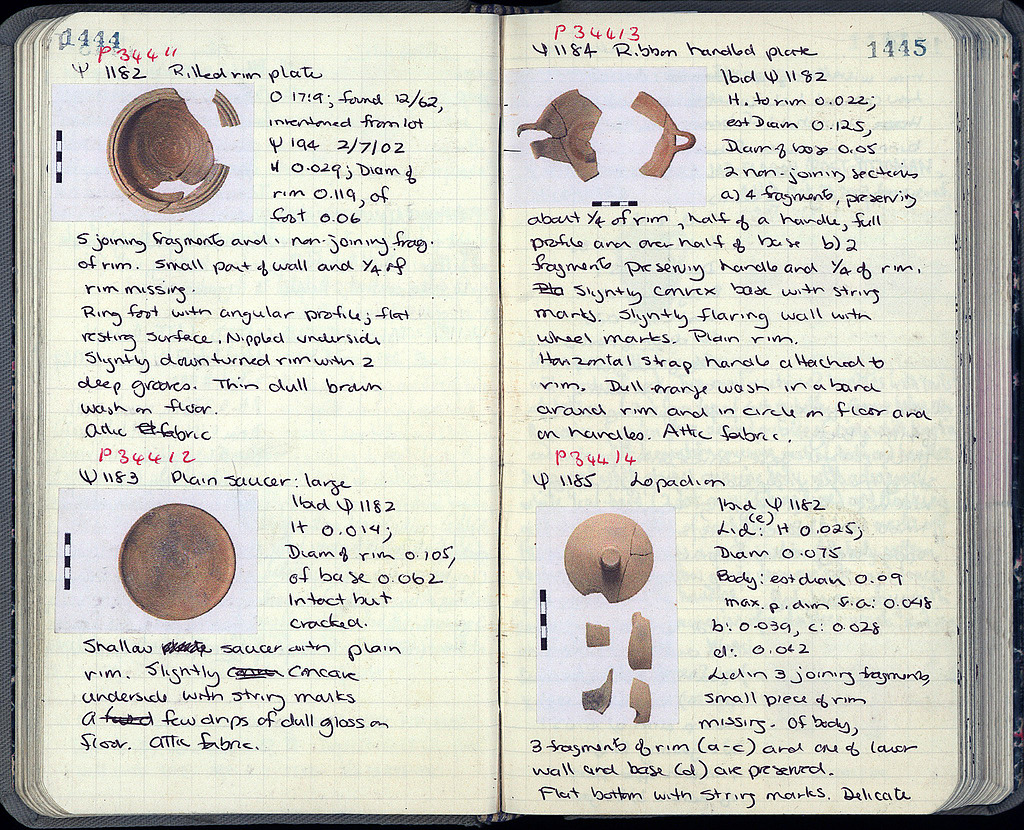 1444
P 34411
Ψ 1182 Rilled rim plate
O 17:9; found 12/62,
inventoried from lot
Ψ 194 2/7/02
H 0.029; Diam of
rim 0.119, of
foot 0.06
5 joining fragments and 1 non-joining frag.
of rim. Small part of wall and 1/4 of
rim missing.
Ring foot with angular profile; flat
resting surface. Nippled underside
Slightly downturned rim with 2
deep grooves. Thin dull brown
wash on floor.
Attic fabric
P 34412
Ψ 1183 Plain saucer: large
Ibid Ψ 1182
H 0.014;
Diam of rim 0.105,
of base 0.062
Intact but
cracked.
Shallow saucer with plain
rim. Slightly concave
underside with string marks
A few drips of dull gloss on
floor. Attic fabric.
1445
P 34413
Ψ 1184 Ribbon handled plate
Ibid Ψ 1182
H. to rim 0.022;
est Diam 0.125,
Diam of base 0.05
2 non-joining sections
a) 4 fragments, preserving
about 1/4 of rim, half of a handle, full
profile and over half of base b) 2
fragments preserving handle and 1/4 of rim.
Slightly convex base with string
marks. Slightly flaring wall with
wheel marks. Plain rim.
Horizontal strap handle attached to
rim. Dull orange wash in a band
around rim and in circle on floor and
on handles. Attic fabric.
P 34414
Ψ 1185 Lopadion
Ibid Ψ 1182
Lid (e): H 0.025;
Diam 0.075
Body: est diam 0.09
max. p. dim a: 0.048
b: 0.039, c: 0.028
d: 0.042
Lid in 3 joining fragments,
small piece of rim
missing. Of body,
3 fragments of rim (a-c) and one of lower
wall and base (d) are preserved.
Flat bottom with string marks. Delicate